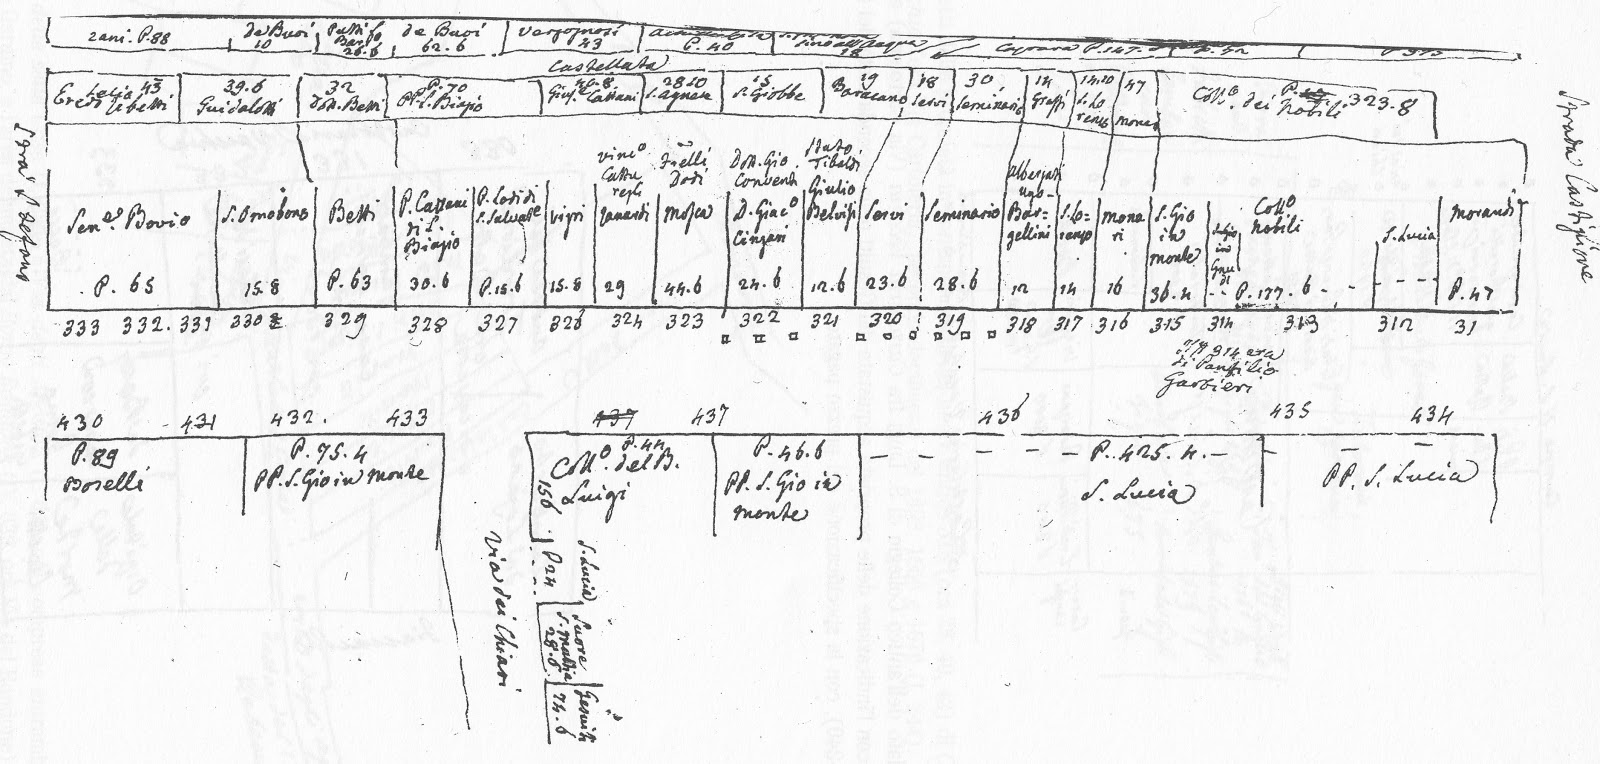 zani. P. 88
de Buoi
10
26.6
de Buoi
62.6
Vergognosi
43
P. 40
sino all'Acqua
18
Castellata
Lelio 43
Eredi
39.6
Guidalotti
32
Dott. Betti
P. 70
PP. S. Biagio
Cattani
28 10
S. Agnese
15
S. Giobbe
19
Baracano
18
Servi
30
Seminario
14
Graffi
14.10
S. Lo
renzo
47
Monari
Coll.o dei Nobili P. 323.8
Strada Castiglione
Stra S. Stefano
Sen.e Bovio
P. 65
S. Omobono
15.8
Betti
P. 63
P. Cattani
di S.
Biagio
30.6
P. Lodi di
S. Salvat.e
P. 15.6
Vigri
15.8
Vinc.o
Zanardi
29
Dosi
Mosca
44.6
Dott. Gio
Conventi
D. Giac.o
Cingari
24.6
Tibaldi
Giulio
Belvisi
12.6
Servi
23.6
Seminario
28.6
Albergati
ugo
Bar=
gellini
12
S. Lo=
renzo
14
Mona
ri
16
S. Gio
in
monte
36.4
Coll.o
Nobili
P. 177.6
S. Lucia
Morandi
P. 47
333 332. 331 330 329 328 327 326 324 323 322 321 320 319 318 317 316 315 314 313 312 31
314 era
di Panfilio
Garbieri
430 431 432. 433 437 437 436 435 434
P. 89
Boselli
P. 75.4
PP. S. Gio in monte
P. 44
Coll.o del B.
Luigi
156
P. 46.6
PP. S. Gio in
monte
P. 425.4.
S. Lucia
PP. S. Lucia
Via dei Chiari
S. Lucia
P. 24
Suore
S. Mattia
28.6
Gesuiti
74.6